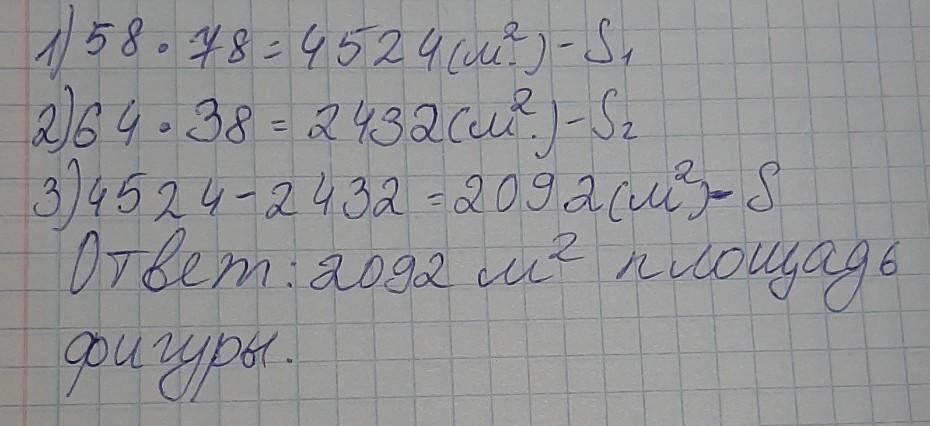 1) 58 · 78 = 4524 (м².) - S₁
2) 64 · 38 = 2432 (м².) - S₂
3) 4524 - 2432 = 2092 (м²) - S
Ответ: 2092 м² площадь
фигуры.